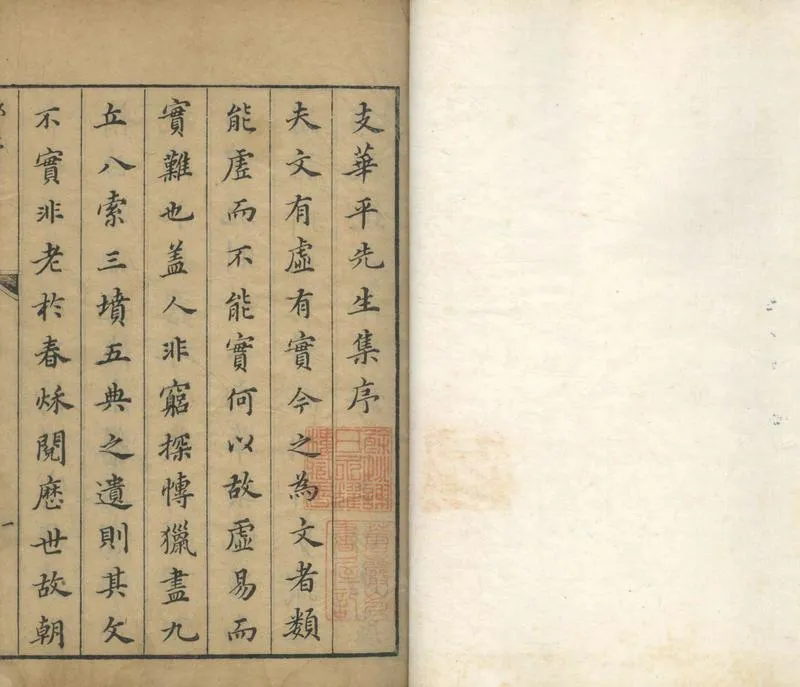 支華平先生集序
夫文有虛有實今之為文者類
能虛而不能實何以故虛易而
實難也盖人非窮探博獵盡九
丘八索三墳五典之遺則其文
不實非老於春秌閱歷世故朝